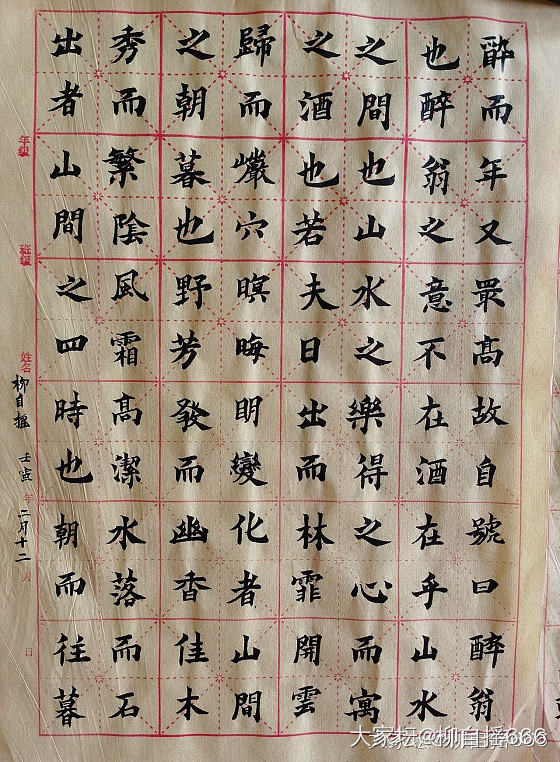 醉而年又最高故自號曰醉翁
也醉翁之意不在酒在乎山水
之間也山水之樂得之心而寓
之酒也若夫日出而林霏開雲
歸而巖穴暝晦明變化者山間
之朝暮也野芳發而幽香佳木
秀而繁陰風霜高潔水落而石
出者山間之四時也朝而往暮
年級 班級 姓名 年 月 日
柳自摇 壬寅 二月十二
大家坛@柳自摇666